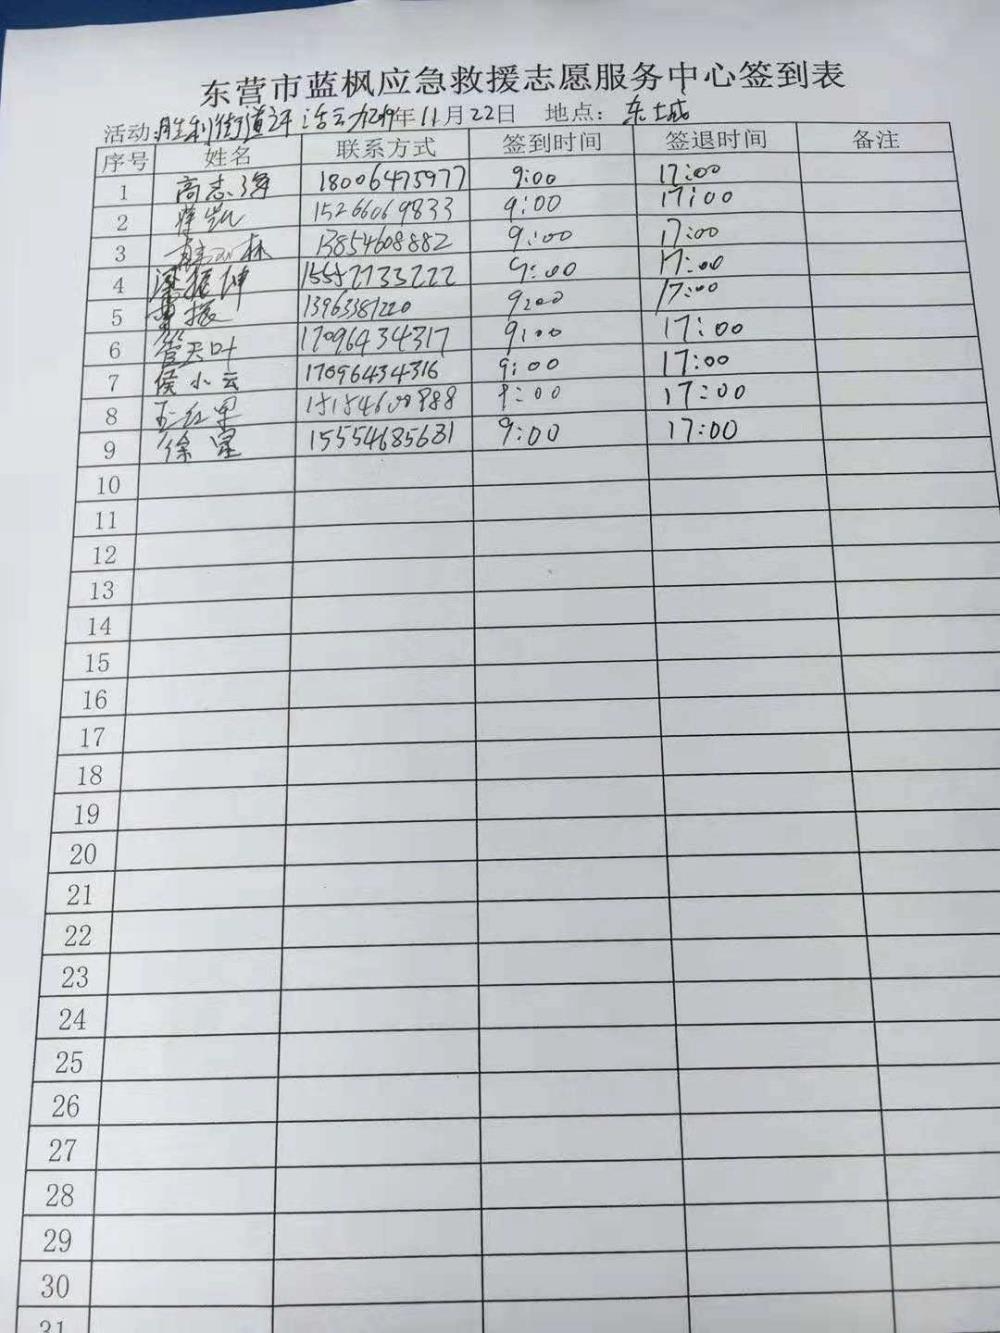 东营市蓝枫应急救援志愿服务中心签到表
活动:胜利街道 活动 2019年11月22日 地点:东城
序号 姓名 联系方式 签到时间 签退时间 备注
1 高志海 18006475977 9:00 17:00
2 蒋凯 15266069833 9:00 17:00
3 林 13854608882 9:00 17:00
4 梁振坤 9:00 17:00
5 振 13963381220 9:00 17:00
6 管天叶 17096434317 9:00 17:00
7 侯小云 17096434316 9:00 17:00
8 王红军 9:00 17:00
9 徐军 15554685681 9:00 17:00
10
11
12
13
14
15
16
17
18
19
20
21
22
23
24
25
26
27
28
29
30
31